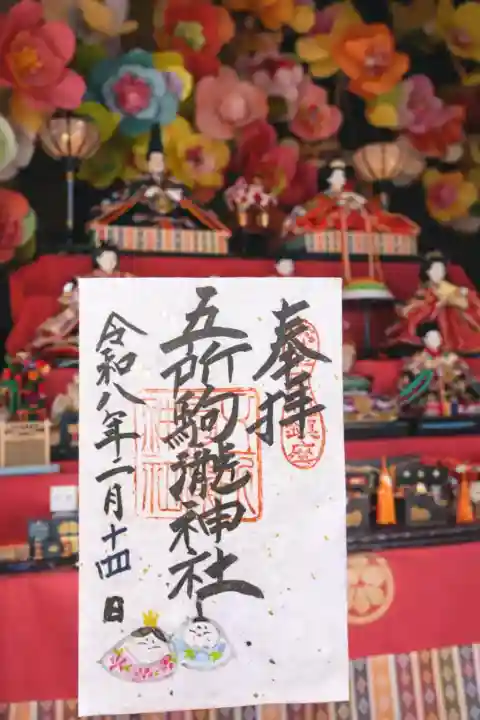 奉拝
鎮座
五所駒瀧神社
令和八年二月十四日